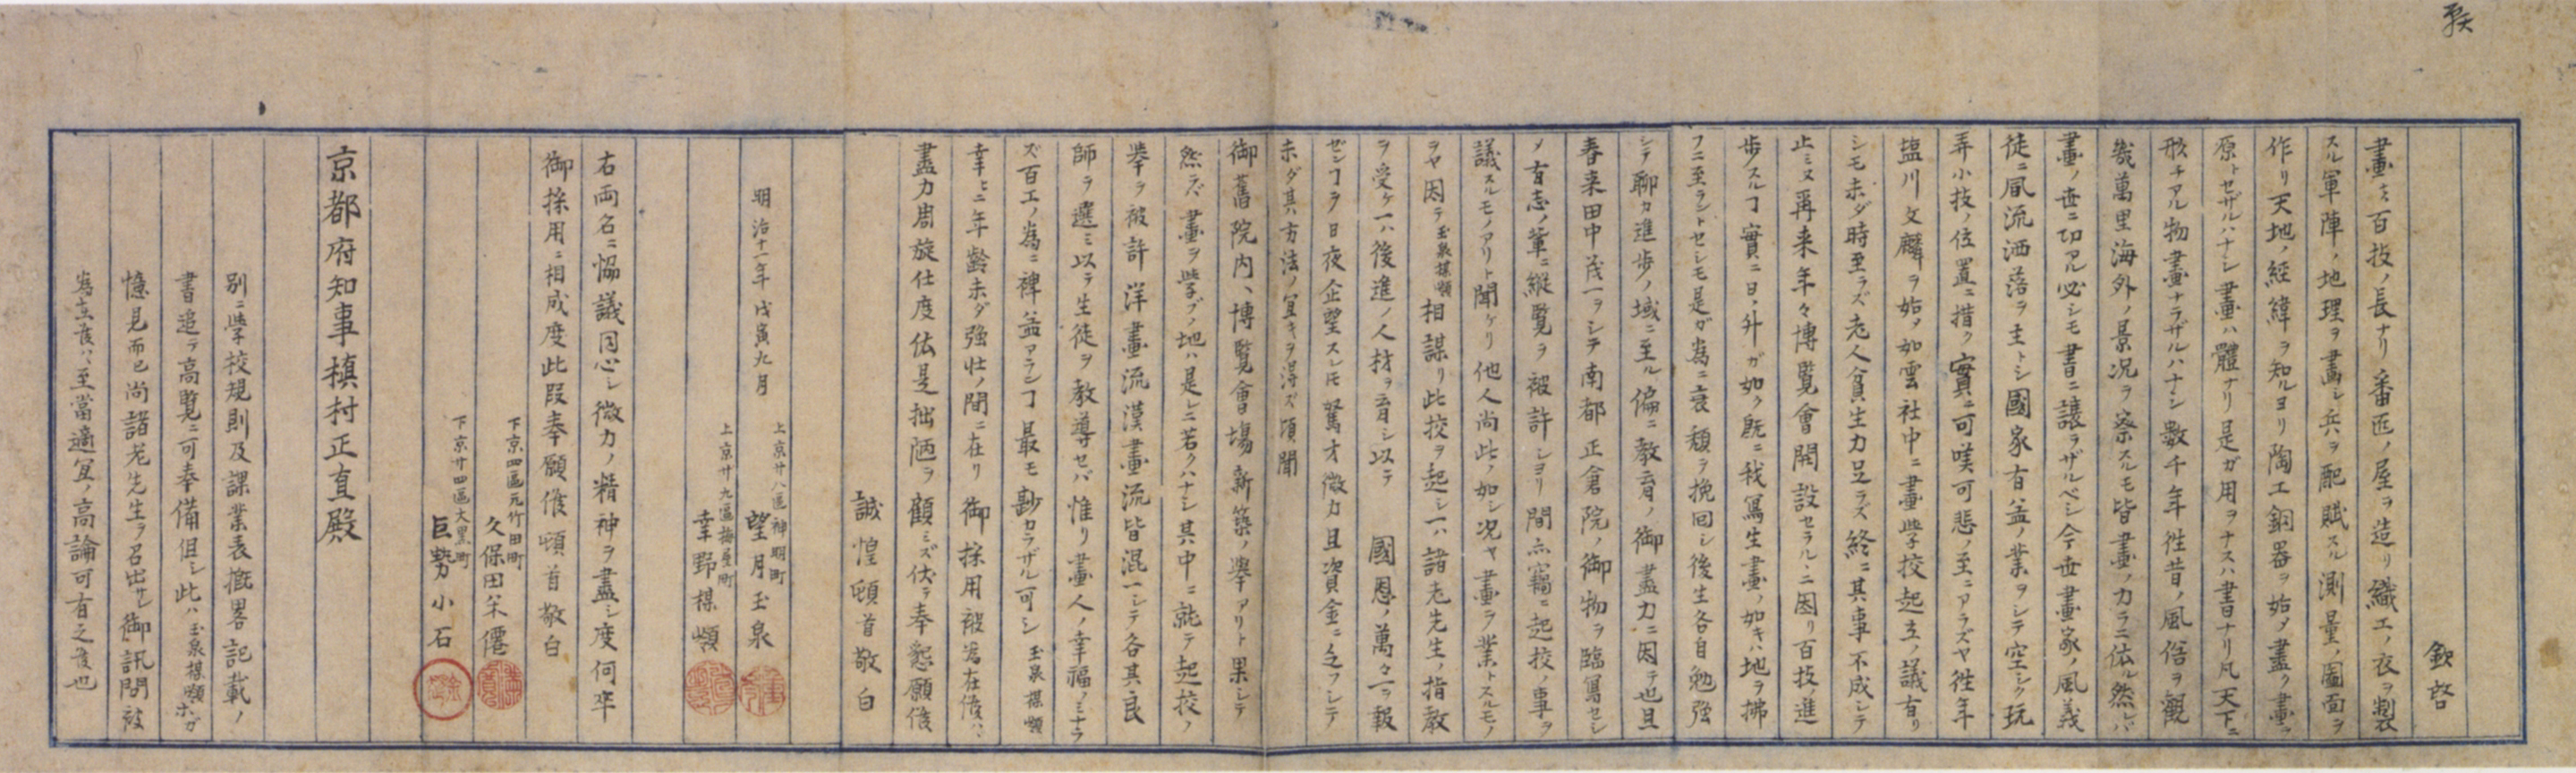 欽啓
畫ハ百技ノ長ナリ番匠ノ屋ヲ造リ織工ノ衣ヲ製
スル軍陣ノ地理ヲ畫シ兵ヲ配賦スル測量ノ圖面ヲ
作リ天地ノ経緯ヲ知ルヨリ陶工銅器ヲ始メ盡ク畫ヲ
原トセザルハナシ畫ハ體ナリ是ガ用ヲナスハ書ナリ凡天下ニ
形チアル物畫ナラザルハナシ數千年徃昔ノ風俗ヲ觀
幾萬里海外ノ景况ヲ察スルモ皆畫ノ力ラニ依ル然レバ
畫ノ世ニ功アル必シモ書ニ譲ラザルベシ今世畫家ノ風義
徒ニ風流洒落ヲ主トシ國家有益ノ業ヲシテ空シク玩
弄小技ノ位置ニ措ク實ニ可嘆可悲ノ至ニアラズヤ徃年
塩川文麟ヲ始メ如雲社中ニ畫学校起立ノ議有リ
シモ未ダ時至ラズ老人貧生力足ラズ終ニ其事不成シテ
止ミヌ再来年々博覧會開設セラルヽニ因リ百技ノ進
歩スルヿ實ニ日ノ升ガ如ク既ニ我寫生畫ノ如キハ地ヲ拂
フニ至ラントセシモ是ガ為ニ衰頽ヲ挽回シ後生各自勉強
シテ聊カ進歩ノ域ニ至ル偏ニ教育ノ御盡力ニ因テ也且
春来田中茂一ヲシテ南都正倉院ノ御物ヲ臨寫セシ
メ有志ノ輩ニ縦覧ヲ被許シヨリ間亦竊ニ起校ノ事ヲ
議スルモノアリト聞ケリ他人尚此ノ如シ况ヤ畫ヲ業トスルモノ
ヲヤ因テ玉泉楳嶺相謀リ此校ヲ起シ一ハ諸老先生ノ指教
ヲ受ケ一ハ後進ノ人材ヲ育シ以テ 國恩ノ萬々一ヲ報
ゼンヿヲ日夜企望スレ𪜈駑才微力且資金ニ乏フシテ
未ダ其方法ノ冝キヲ得ズ頃聞
御舊院内ヘ博覧會塲新築ノ擧アリト果シテ
然ラズ畫ヲ学ブノ地ハ是レニ若クハナシ其中ニ就テ起校ノ
挙ヲ被許洋畫流漢畫流皆混一シテ各其良
師ヲ選ミ以テ生徒ヲ教導セバ惟リ畫人ノ幸福ノミナラ
ズ百工ノ為ニ裨益アランヿ最モ尠カラザル可シ玉泉楳嶺
幸ヒニ年齢未ダ強壮ノ間ニ在リ御採用被為在候ハヽ
盡力周旋仕度依是拙陋ヲ顧ミズ伏テ奉懇願候
誠惶頓首敬白
明治十一年戊寅九月
上京廿八區神明町
望月玉泉
上京廿九區梅屋町
幸野楳嶺
右両名ニ恊議同心シ微力ノ精神ヲ盡シ度何卒
御採用ニ相成度此段奉願候頓首敬白
下京四區元竹田町
久保田米僊
下京廿四區大黒町
巨勢小石
京都府知事槙村正直殿
別ニ学校規則及課業表概畧記載ノ
書追テ高覧ニ可奉備但シ此ハ玉泉楳嶺ホガ
憶見而已尚諸老先生ヲ召出サレ御訊問被
為在候ハヽ至當適冝ノ高論可有之候也